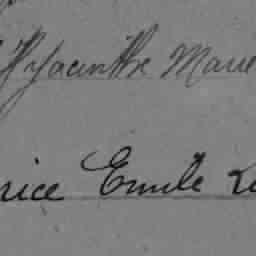 Hyacinthe Marie
rice Emile Le